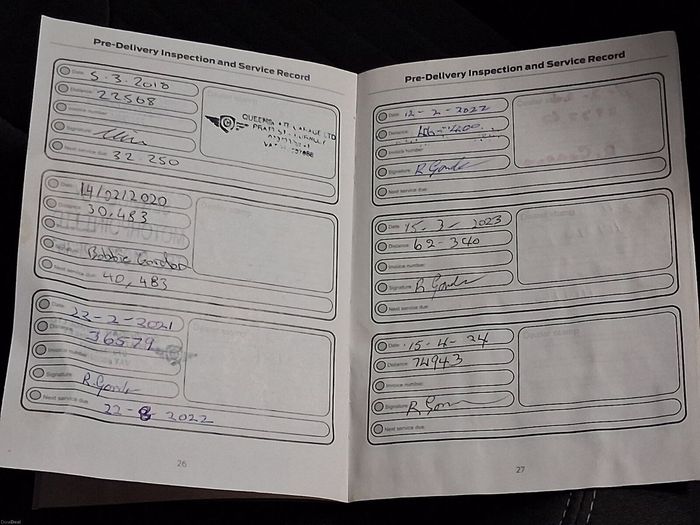 Pre-Delivery Inspection and Service Record
Date 5.3.2018
Distance 22568
Invoice number
Signature
Next service due 32.250
QUEENS GARAGE LTD
Date 14/02/2020
Distance 30,483
Signature Bobbie Gordon
Next service due 40,483
Date 22-2-2021
Distance 36579
Invoice number
Signature R. Gordon
Next service due 22-2022
26
Pre-Delivery Inspection and Service Record
Date 12-2-2022
Distance
Invoice number
Signature R Gordon
Next service due
Dealer stamp
Date 15-3-2023
Distance 62-340
Invoice number
Signature R Gordon
Next service due
Dealer stamp
Date 15-4-24
Distance 74943
Invoice number
Signature R Gordon
Next service due
Dealer stamp
27
DoneDeal